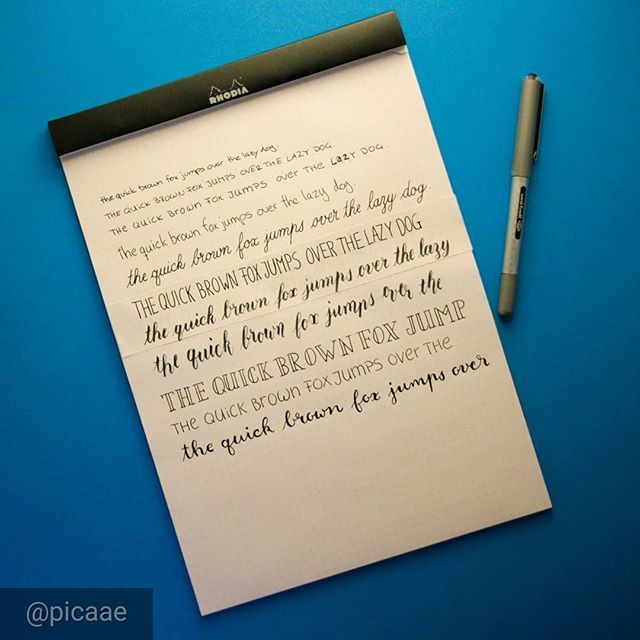 RHODIA
the quick brown fox jumps over the lazy dog.
THE QUICK BROWN FOX JUMPS OVER THE LAZY DOG.
THE QUICK BROWN FOX JUMPS over THE LAZY DOG.
the quick brown fox jumps over the lazy dog.
the quick brown fox jumps over the lazy dog.
THE QUICK BROWN FOX JUMPS OVER THE LAZY DOG
the quick brown fox jumps over the lazy
the quick brown fox jumps over the
THE QUICK BROWN FOX JUMP
THE QUICK BROWN FOX JUMPS over THE
the quick brown fox jumps over
@picaae